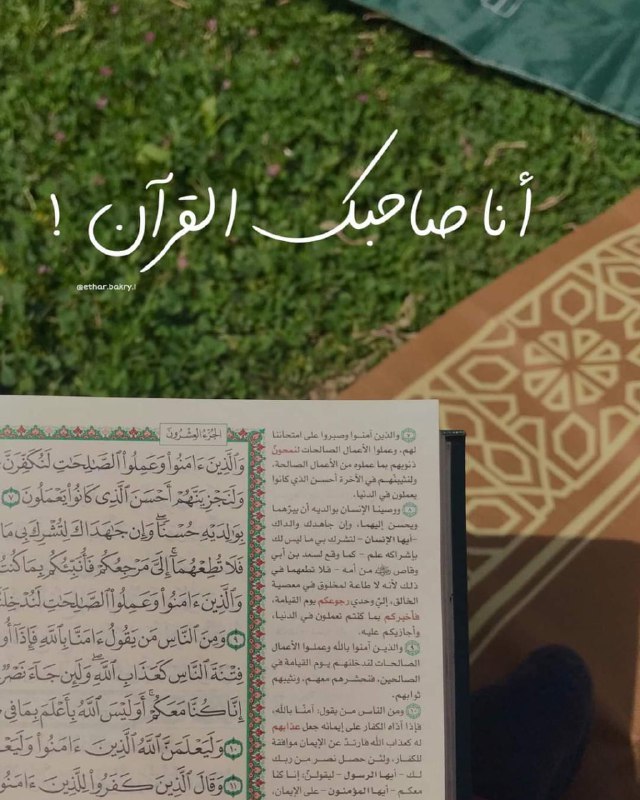 أنا صاحبك القرآن !
@ethar.bakry.1
الجزء العشرون
وَٱلَّذِينَ ءَامَنُوا۟ وَعَمِلُوا۟ ٱلصَّٰلِحَٰتِ لَنُكَفِّرَنَّ
وَلَنَجْزِيَنَّهُمْ أَحْسَنَ ٱلَّذِى كَانُوا۟ يَعْمَلُونَ ٧
بِوَٰلِدَيْهِ حُسْنًا وَإِن جَٰهَدَاكَ لِتُشْرِكَ بِى مَا
فَلَا تُطِعْهُمَآ إِلَىَّ مَرْجِعُكُمْ فَأُنَبِّئُكُم بِمَا كُنتُ
وَٱلَّذِينَ ءَامَنُوا۟ وَعَمِلُوا۟ ٱلصَّٰلِحَٰتِ لَنُدْخِلَ
٩ وَمِنَ ٱلنَّاسِ مَن يَقُولُ ءَامَنَّا بِٱللَّهِ فَإِذَآ أُو
فِتْنَةَ ٱلنَّاسِ كَعَذَابِ ٱللَّهِ وَلَئِن جَآءَ نَصْرٌ
إِنَّا كُنَّا مَعَكُمْ أَوَلَيْسَ ٱللَّهُ بِأَعْلَمَ بِمَا فِى
وَلَيَعْلَمَنَّ ٱللَّهُ ٱلَّذِينَ ءَامَنُوا۟ وَلَيَعْ
١١ وَقَالَ ٱلَّذِينَ كَفَرُوا۟ لِلَّذِينَ ءَامَنُو
٧ والذين آمنوا وصبروا على امتحاننا
لهم، وعملوا الأعمال الصالحات لنمحونّ
ذنوبهم بما عملوه من الأعمال الصالحة،
ولنثيبنّهم في الآخرة أحسن الذي كانوا
يعملون في الدنيا.
٨ ووصينا الإنسان بوالديه أن يبرّهما
ويحسن إليهما، وإن جاهدك والداك
-أيها الإنسان- لتشرك بي ما ليس لك
بإشراكه علم - كما وقع لسعد بن أبي
وقاص من أمه - فلا تطعهما في
ذلك لأنه لا طاعة لمخلوق في معصية
الخالق، إليّ وحدي رجوعكم يوم القيامة،
فأخبركم بما كنتم تعملون في الدنيا،
وأجازيكم عليه.
٩ والذين آمنوا بالله وعملوا الأعمال
الصالحات لندخلنهم يوم القيامة في
الصالحين، فنحشرهم معهم، ونثيبهم
ثوابهم.
١٠ ومن الناس من يقول: آمنّا بالله،
فإذا آذاه الكفار على إيمانه جعل عذابهم
له كعذاب الله فارتدّ عن الإيمان موافقة
للكفار، ولئن حصل نصر من ربك
لك - أيها الرسول - ليقولنّ: إنا كنا
معكم - أيها المؤمنون - على الإيمان،